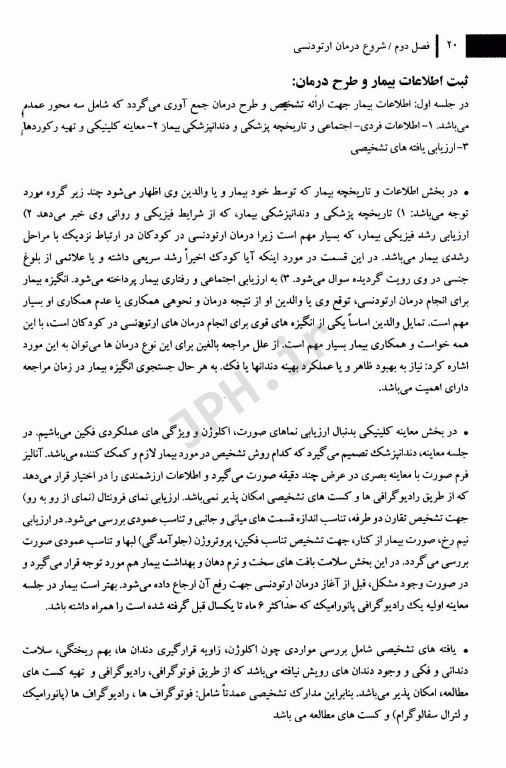 ۲۰ | فصل دوم / شروع درمان ارتودنسی
ثبت اطلاعات بیمار و طرح درمان:
در جلسه اول: اطلاعات بیمار جهت ارائه تشخیص و طرح درمان جمع آوری می‌گردد که شامل سه محور عمده
می‌باشد. ۱- اطلاعات فردی- اجتماعی و تاریخچه پزشکی و دندانپزشکی بیمار ۲- معاینه کلینیکی و تهیه رکوردها
۳- ارزیابی یافته های تشخیصی
• در بخش اطلاعات و تاریخچه بیمار که توسط خود بیمار و یا والدین وی اظهار می‌شود چند زیر گروه مورد
توجه می‌باشد: ۱) تاریخچه پزشکی و دندانپزشکی بیمار، که از شرایط فیزیکی و روانی وی خبر می‌دهد ۲)
ارزیابی رشد فیزیکی بیمار، که بسیار مهم است زیرا درمان ارتودنسی در کودکان در ارتباط نزدیک با مراحل
رشدی بیمار می‌باشد. در این قسمت در مورد اینکه آیا کودک اخیراً رشد سریعی داشته و یا علائمی از بلوغ
جنسی در وی رویت گردیده سوال می‌شود. ۳) به ارزیابی اجتماعی و رفتاری بیمار پرداخته می‌شود. انگیزه بیمار
برای انجام درمان ارتودنسی، توقع وی یا والدین او از نتیجه درمان و نحوه‌ی همکاری یا عدم همکاری او بسیار
مهم است. تمایل والدین اساساً یکی از انگیزه های قوی برای انجام درمان های ارتودنسی در کودکان است، با این
همه خواست و همکاری بیمار بسیار مهم است. از علل مراجعه بالغین برای این نوع درمان ها می‌توان به این مورد
اشاره کرد: نیاز به بهبود ظاهر و یا عملکرد بهینه دندانها یا فک. به هر حال جستجوی انگیزه بیمار در زمان مراجعه
دارای اهمیت می‌باشد.
• در بخش معاینه کلینیکی بدنبال ارزیابی نماهای صورت، اکلوژن و ویژگی های عملکردی فکین می‌باشیم. در
جلسه معاینه، دندانپزشک تصمیم می‌گیرد که کدام روش تشخیص در مورد بیمار لازم و کمک کننده می‌باشد. آنالیز
فرم صورت با معاینه بصری در عرض چند دقیقه صورت می‌گیرد و اطلاعات ارزشمندی را در اختیار قرار می‌دهد
که از طریق رادیوگرافی ها و کست های تشخیصی امکان پذیر نمی‌باشد. ارزیابی نمای فرونتال (نمای از رو به رو)
جهت تشخیص تقارن دو طرفه، تناسب اندازه قسمت های میانی و جانبی و تناسب عمودی بررسی می‌شود. در ارزیابی
نیم رخ، صورت بیمار از کنار، جهت تشخیص تناسب فکین، پروتروژن (جلوآمدگی) لبها و تناسب عمودی صورت
بررسی می‌گردد. در این بخش سلامت بافت های سخت و نرم دهان و بهداشت بیمار هم مورد توجه قرار می‌گیرد و
در صورت وجود مشکل، قبل از آغاز درمان ارتودنسی جهت رفع آن ارجاع داده می‌شود. بهتر است بیمار در جلسه
معاینه اولیه یک رادیوگرافی پانورامیک که حداکثر ۶ ماه تا یکسال قبل گرفته شده است را همراه داشته باشد.
• یافته های تشخیصی شامل بررسی مواردی چون اکلوژن، زاویه قرارگیری دندان ها، بهم ریختگی، سلامت
دندانی و فکی و وجود دندان های رویش نیافته می‌باشد که از طریق فوتوگرافی، رادیوگرافی و تهیه کست های
مطالعه، امکان پذیر می‌باشد. بنابراین مدارک تشخیصی عمدتاً شامل: فوتوگراف ها ، رادیوگراف ها (پانورامیک
و لترال سفالوگرام) و کست های مطالعه می باشد
JPH.ir